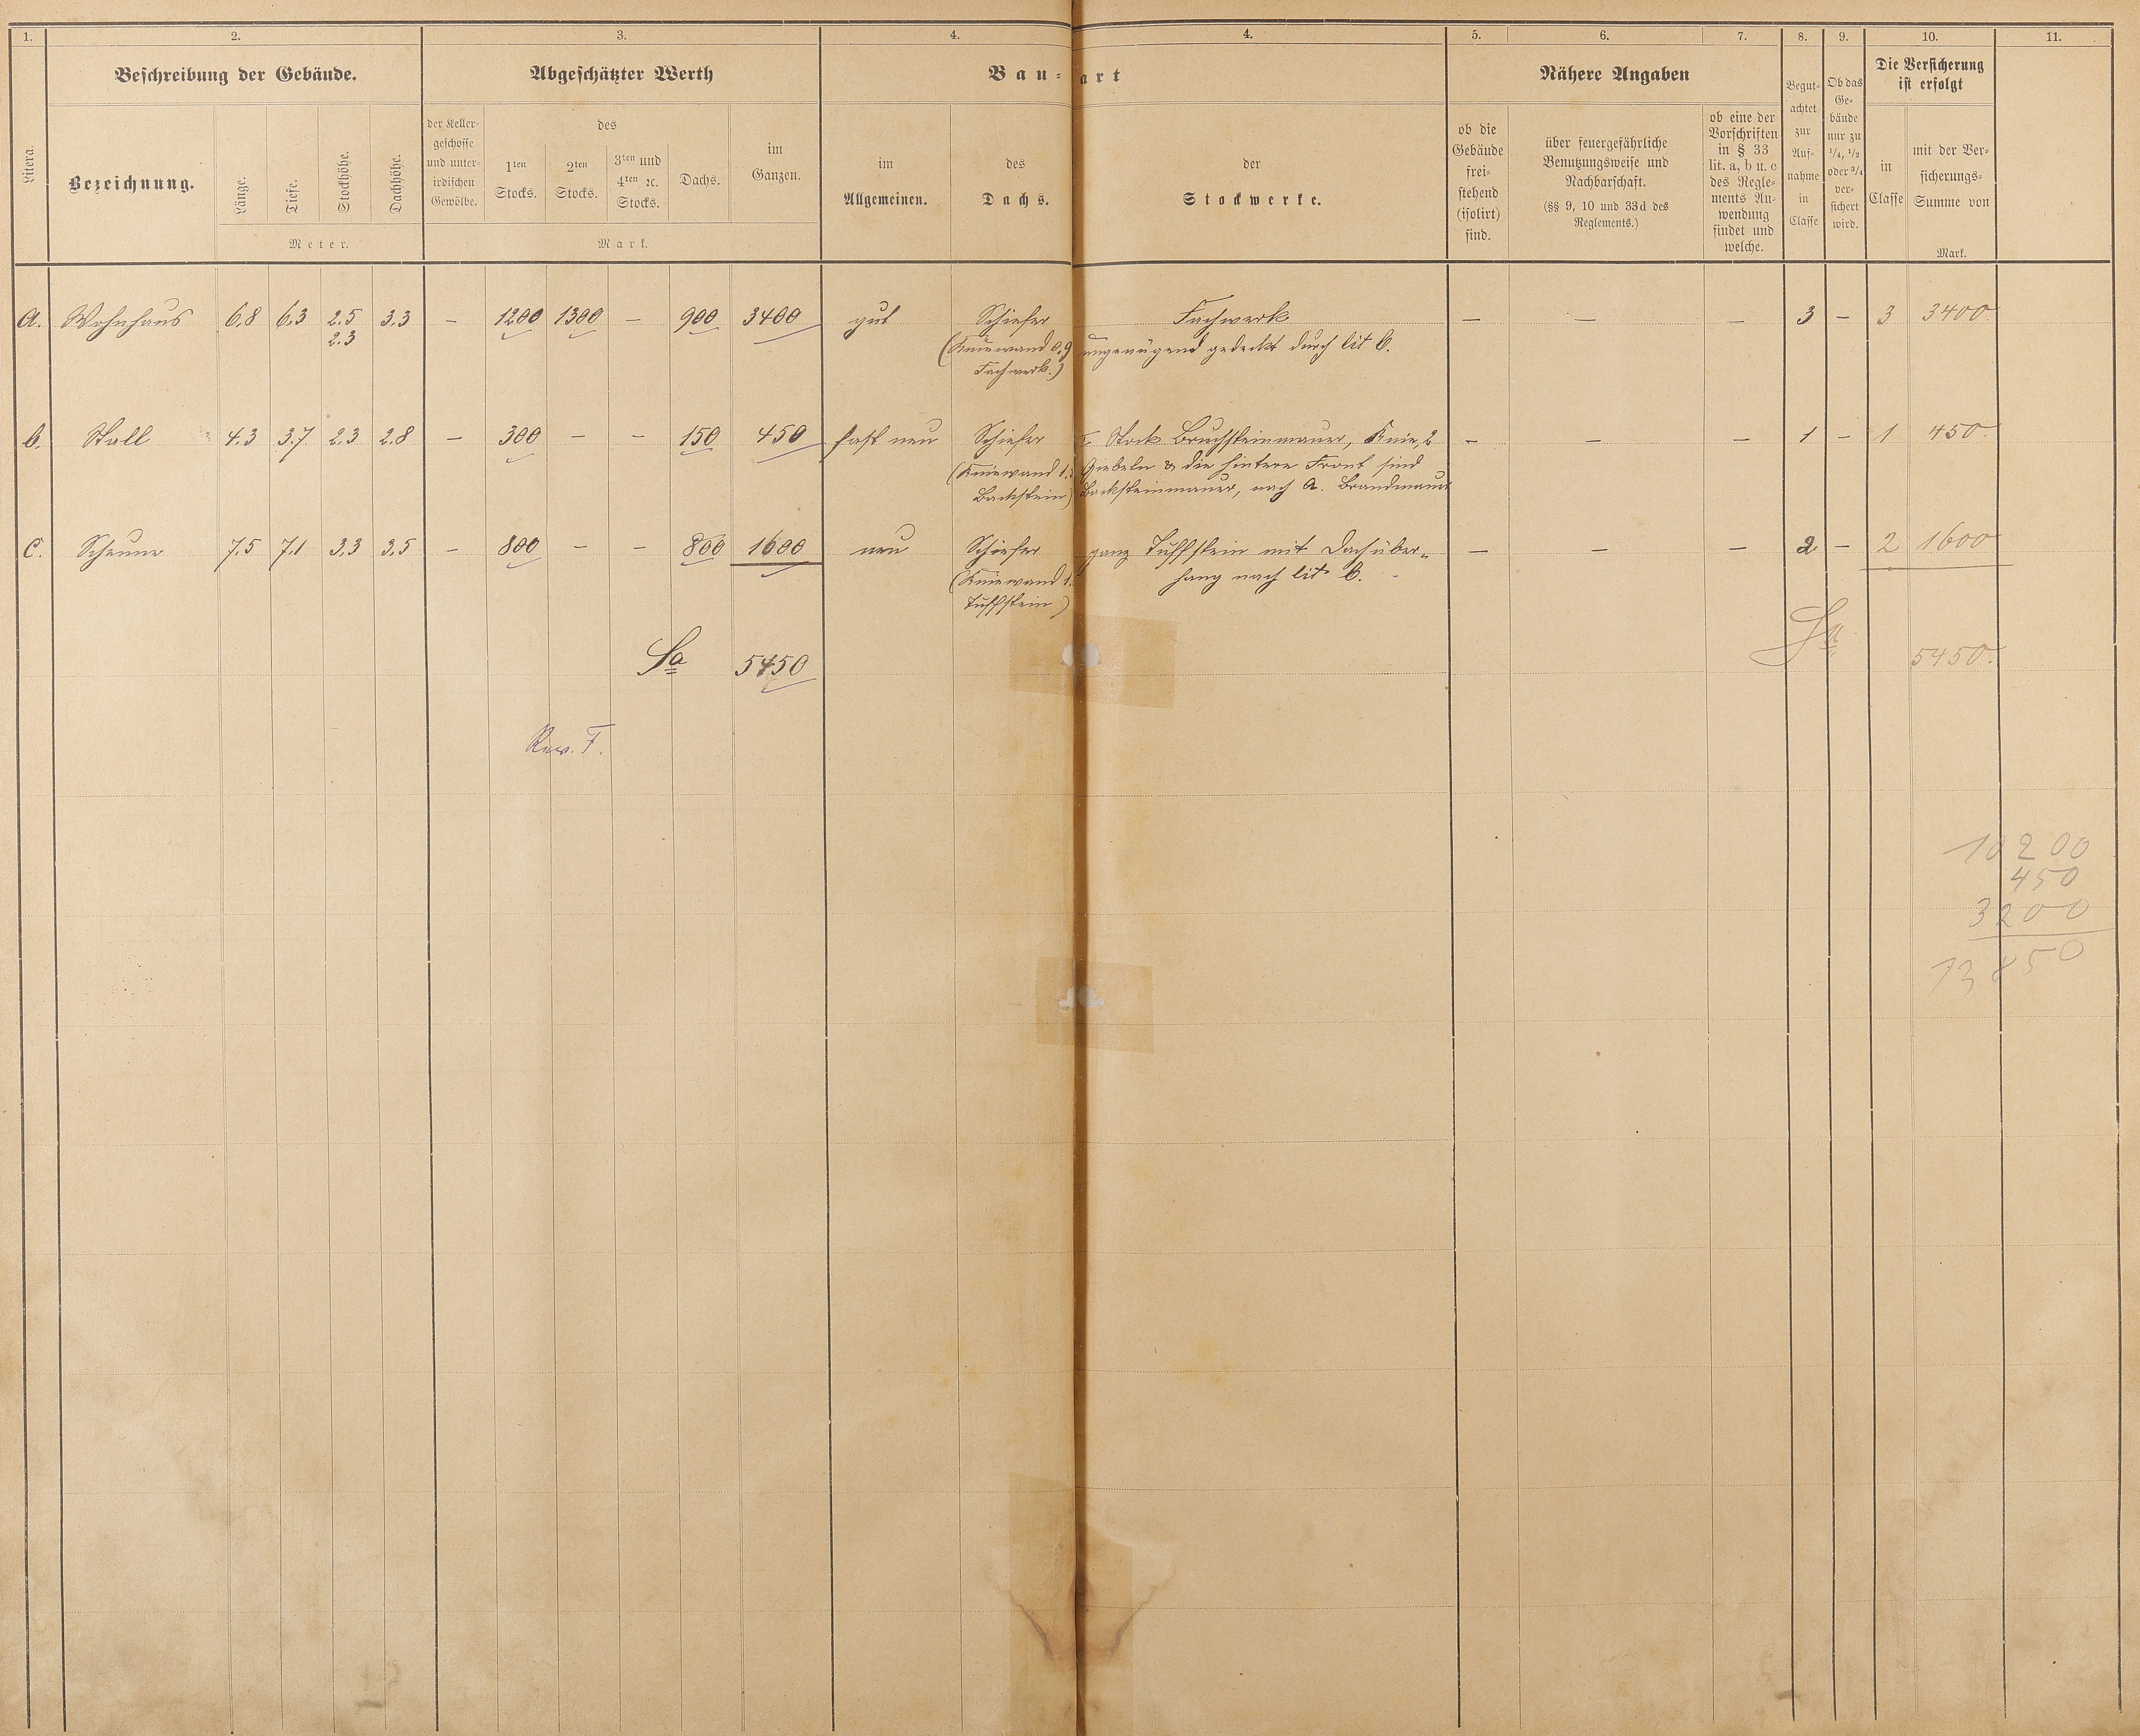 1. 2. 3. 4. 4. 5. 6. 7. 8. 9. 10. 11.
Litera.
Beschreibung der Gebäude.
Bezeichnung.
Länge.
Tiefe.
Stockhöhe.
Dachhöhe.
Meter.
Abgeschätzter Werth
der Keller-
geschosse
und unter-
irdischen
Gewölbe.
des
1ten
Stocks.
2ten
Stocks.
3ten und
4ten ꝛc.
Stocks.
Dachs.
im
Ganzen.
Mark.
Bau-art
im
Allgemeinen.
des
Dachs.
der
Stockwerke.
Nähere Angaben
ob die
Gebäude
frei-
stehend
(isolirt)
sind.
über feuergefährliche
Benutzungsweise und
Nachbarschaft.
(§§ 9, 10 und 33d des
Reglements.)
ob eine der
Vorschriften
in § 33
lit. a, b u. c
des Regle-
ments An-
wendung
findet und
welche.
Begut-
achtet
zur
Auf-
nahme
in
Classe
Ob das
Ge-
bäude
nur zu
1/4, 1/2
oder 3/4
ver-
sichert
wird.
Die Versicherung
ist erfolgt
in
Classe
mit der Ver-
sicherungs-
Summe von
Mark.
a. Wohnhaus 6,8 6,3 2,5 3,3 — 1200 1300 — 900 3400 gut Schiefer Fachwerk — — — 3 — 3 3400
2,3 (Kniewand 0,9 ungenügend gedeckt durch lit b.
Fachwerk.)
b. Stall 4,3 3,7 2,3 2,8 — 300 — — 150 450 fast neu Schiefer I. Stock Bruchsteinmauer, Knie, 2 — — — 1 — 1 450.
(Kniewand 1, Giebeln & die hintere Front sind
Backstein) Backsteinmauer, nach a. Brandmauer
c. Scheune 7,5 7,1 3,3 3,5 — 800 — — 800 1600 neu Schiefer ganz Tuffstein mit Dachüber- — — — 2 — 2 1600
(Kniewand 1, hang nach lit b.
Tuffstein)
Sa 5450 Sa 5450.
Rev. F.
10200
450
3200
13850